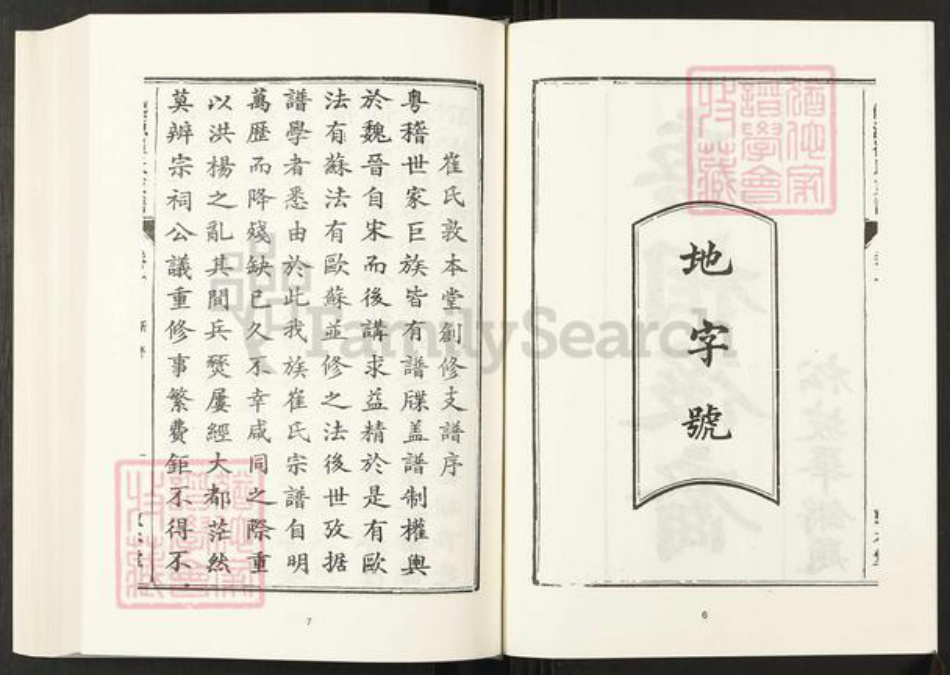 地字號
6
崔氏敦本堂創修支譜序
粵稽世家巨族皆有譜牒盖譜制權輿
於魏晉自宋而後講求益精於是有歐
法有蘇法有歐蘇並修之法後世攷据
譜學者悉由於此我族崔氏宗譜自明
萬歷而降殘缺已久不幸咸同之際重
以洪楊之亂其間兵燹屢經大都茫然
莫辨宗祠公議重修事繁費鉅不得不
7
FamilySearch